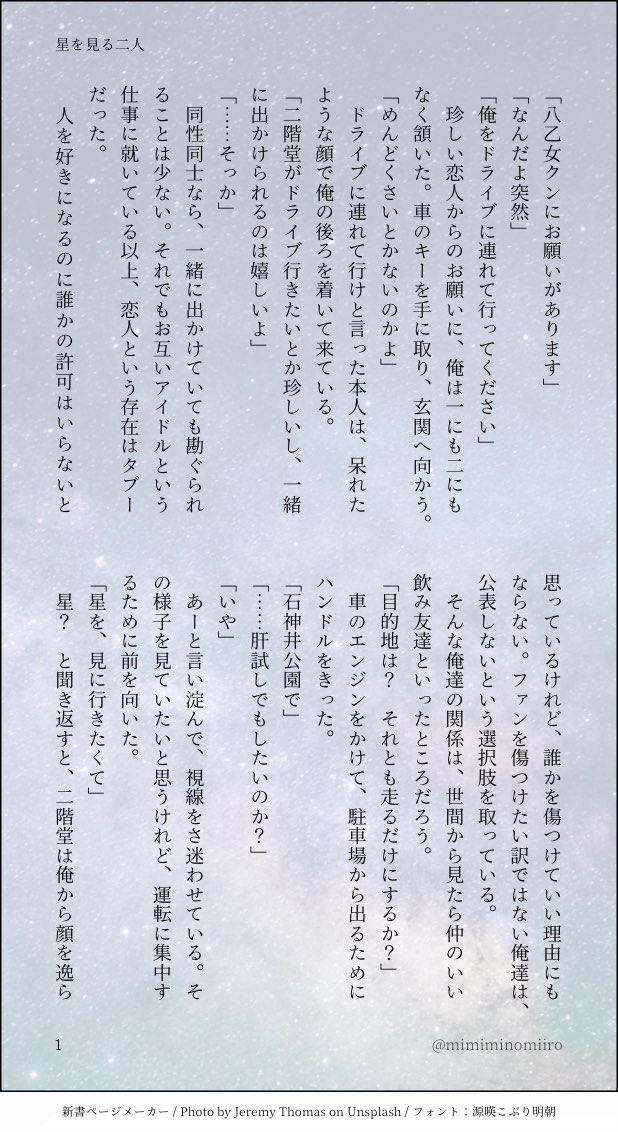 星を見る二人
「八乙女クンにお願いがあります」
「なんだよ突然」
「俺をドライブに連れて行ってください」
　珍しい恋人からのお願いに、俺は一にも二にも
なく頷いた。車のキーを手に取り、玄関へ向かう。
「めんどくさいとかないのかよ」
　ドライブに連れて行けと言った本人は、呆れた
ような顔で俺の後ろを着いて来ている。
「二階堂がドライブ行きたいとか珍しいし、一緒
に出かけられるのは嬉しいよ」
「……そっか」
　同性同士なら、一緒に出かけていても勘ぐられ
ることは少ない。それでもお互いアイドルという
仕事に就いている以上、恋人という存在はタブー
だった。
　人を好きになるのに誰かの許可はいらないと
思っているけれど、誰かを傷つけていい理由にも
ならない。ファンを傷つけたい訳ではない俺達は、
公表しないという選択肢を取っている。
　そんな俺達の関係は、世間から見たら仲のいい
飲み友達といったところだろう。
「目的地は？　それとも走るだけにするか？」
　車のエンジンをかけて、駐車場から出るために
ハンドルをきった。
「石神井公園で」
「……肝試しでもしたいのか？」
「いや」
　あーと言い淀んで、視線をさ迷わせている。そ
の様子を見ていたいと思うけれど、運転に集中す
るために前を向いた。
「星を、見に行きたくて」
　星？　と聞き返すと、二階堂は俺から顔を逸ら
1
@mimiminomiiro
新書ページメーカー / Photo by Jeremy Thomas on Unsplash / フォント：源暎こぶり明朝